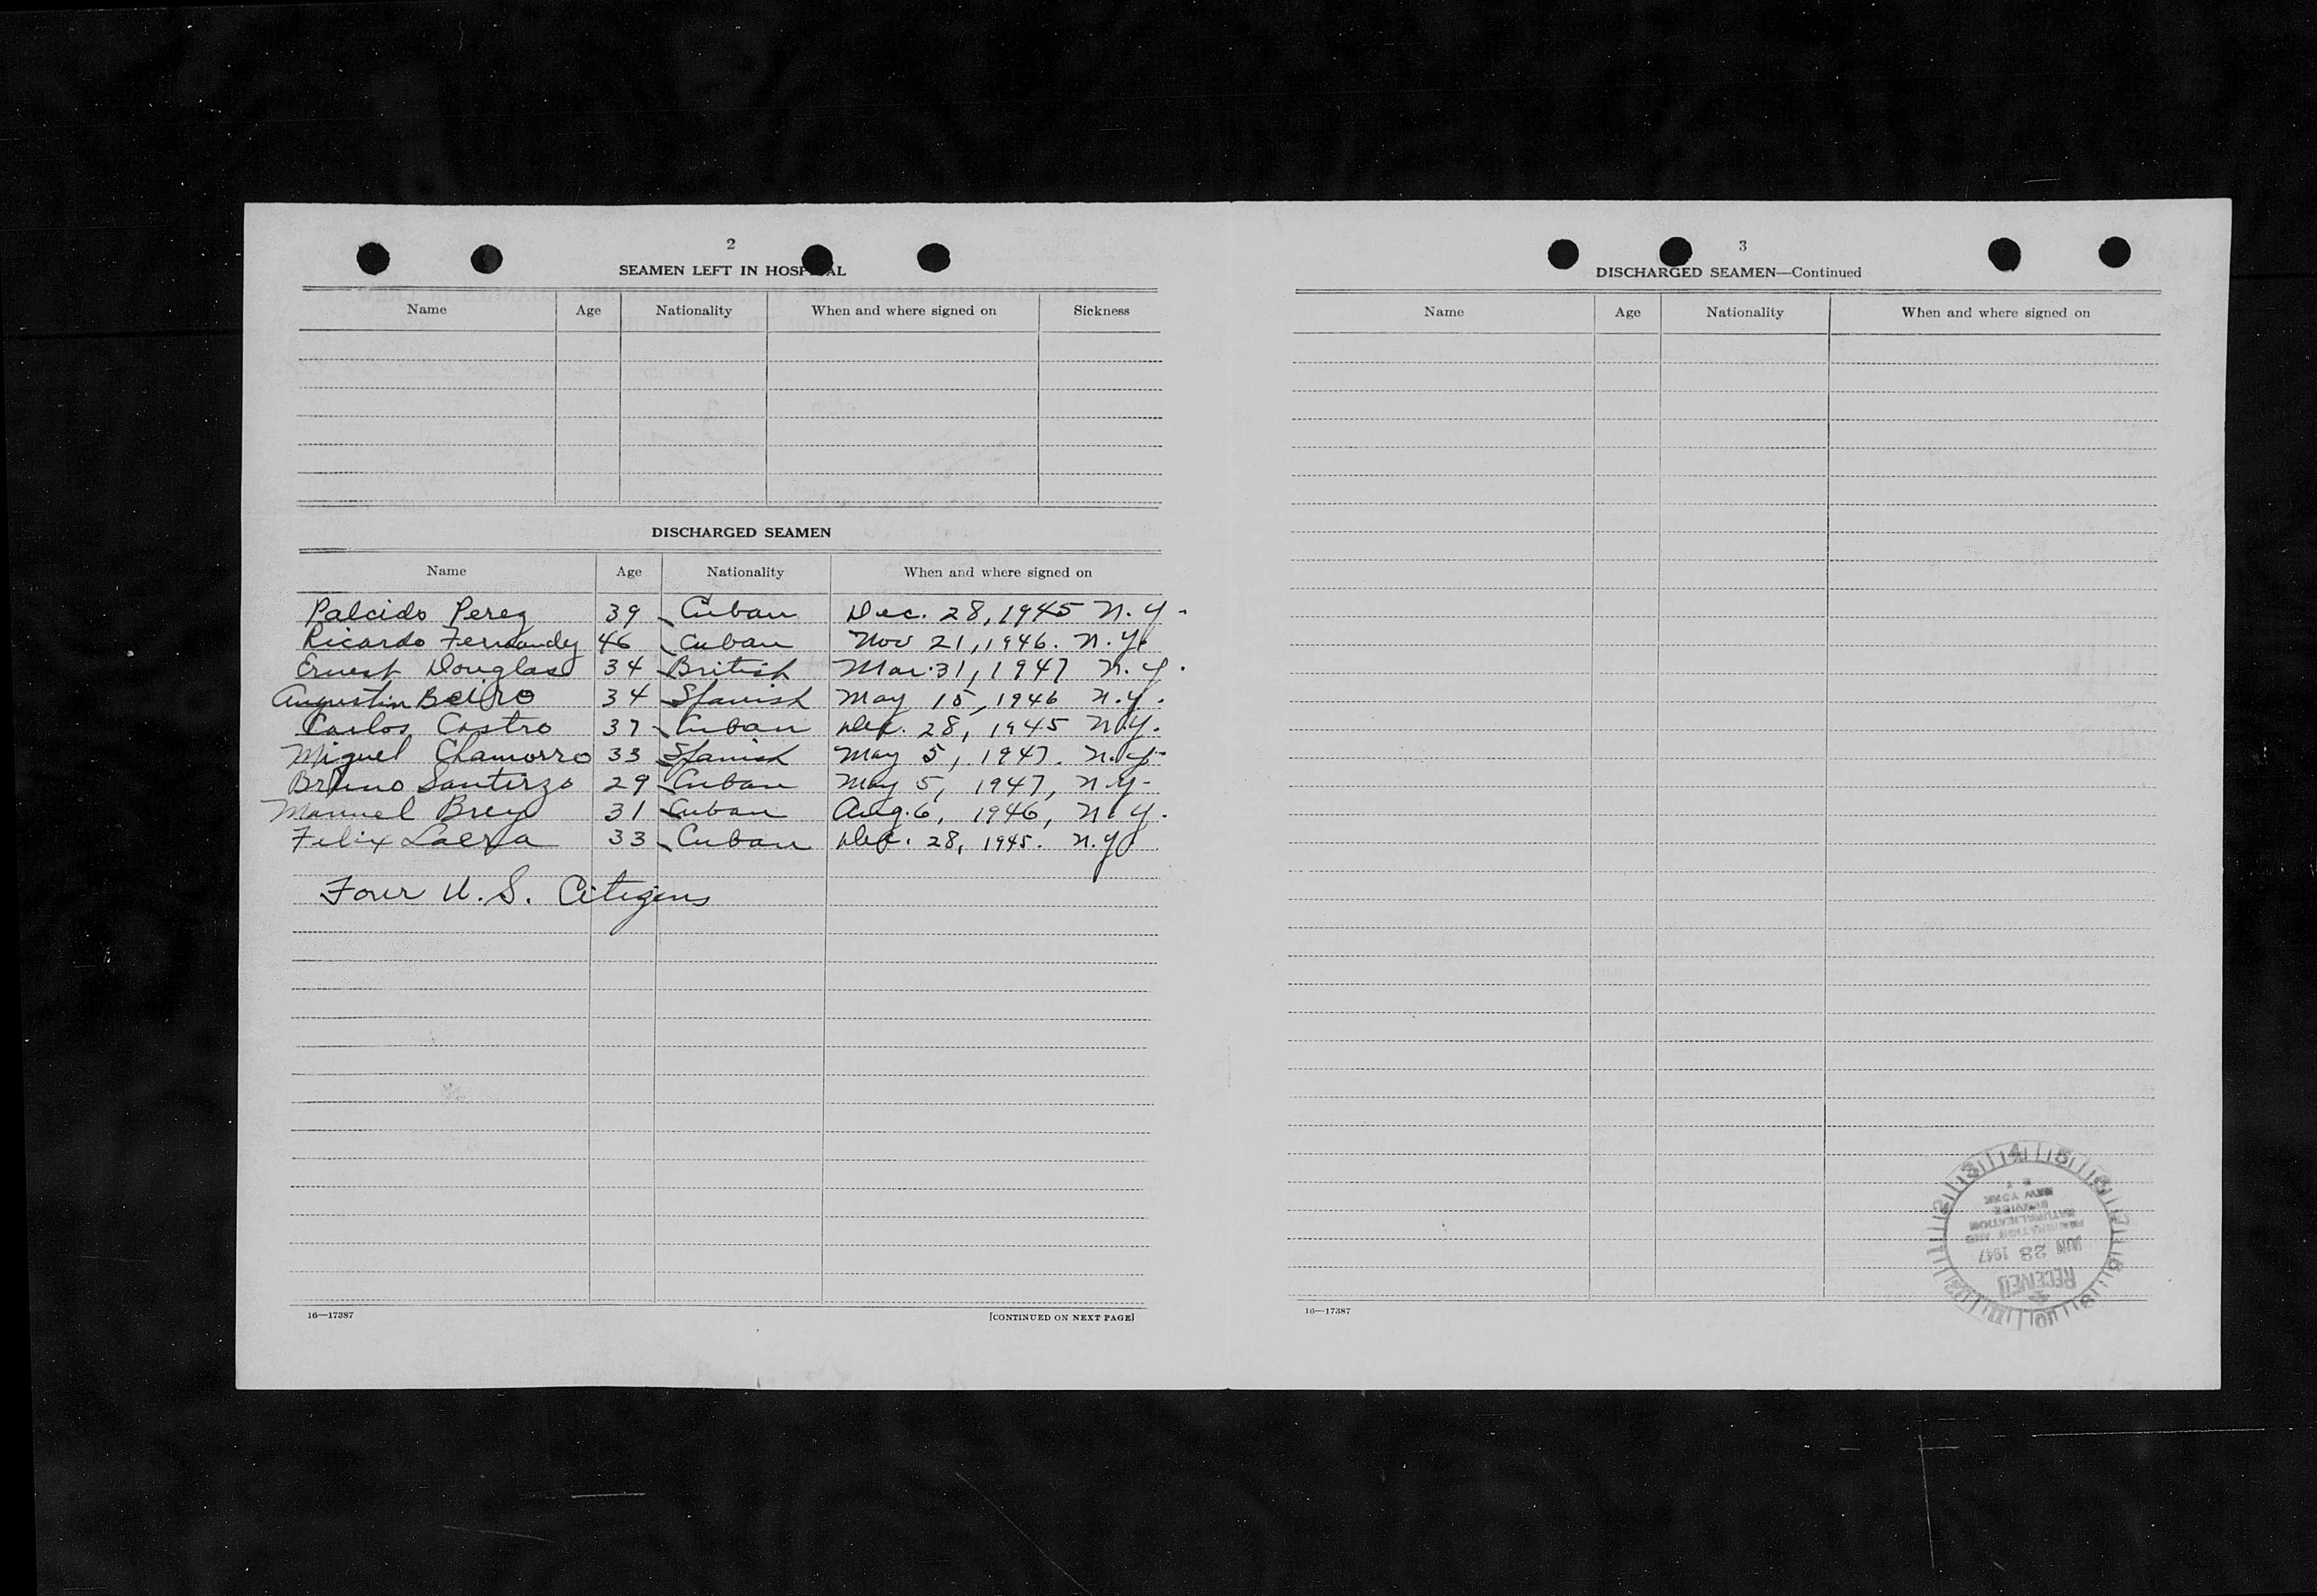 2
SEAMEN LEFT IN HOSP AL
Name Age Nationality When and where signed on Sickness
DISCHARGED SEAMEN
Name Age Nationality When and where signed on
Palcido Perez 39 Cuban Dec. 28, 1945 N.Y.
Ricardo Fernandez 46 Cuban Nov 21, 1946. N.Y.
Ernest Douglas 34 British Mar. 31, 1947 N.Y.
Augustin Beiro 34 Spanish May 15, 1946 N.Y.
Carlos Castro 37 Cuban Dec. 28, 1945 N.Y.
Miguel Chamorro 33 Spanish May 5, 1947. N.Y.
Bruno Santirzo 29 Cuban May 5, 1947, N.Y.
Manuel Brey 31 Cuban Aug. 6, 1946, N.Y.
Felix 33 Cuban Dec. 28, 1945. N.Y.
Four U.S. Citizens
16—17387 [CONTINUED ON NEXT PAGE]
3
DISCHARGED SEAMEN—Continued
Name Age Nationality When and where signed on
RECEIVED
JUN 23 1947
IMMIGRATION AND
NATURALIZATION
SERVICE
NEW YORK
N Y
16—17387